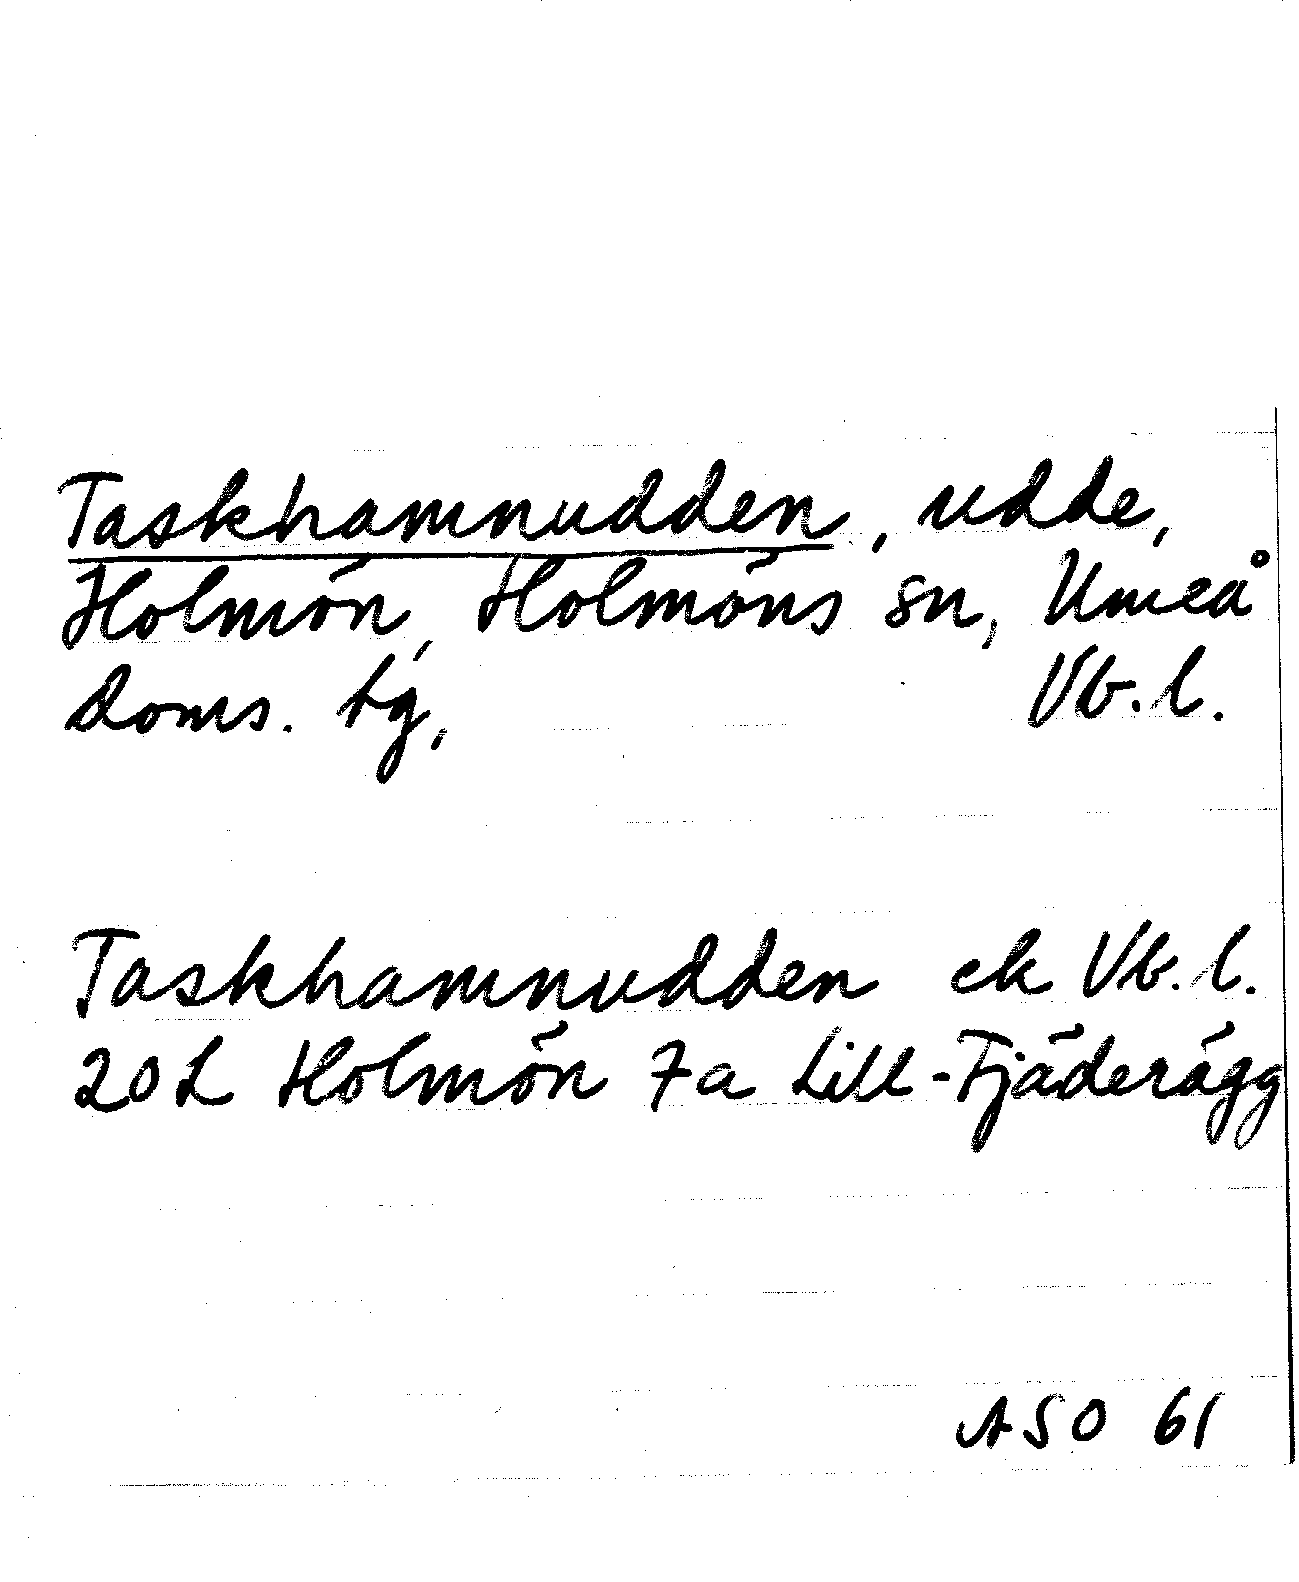 Taskhamnudden, udde,
Holmön, Holmöns sn, Umeå
Doms. tg, Vb.l.
Taskhamnudden ek Vb.l.
20L Holmön 7a Lill-Fjäderägg
ASO 61